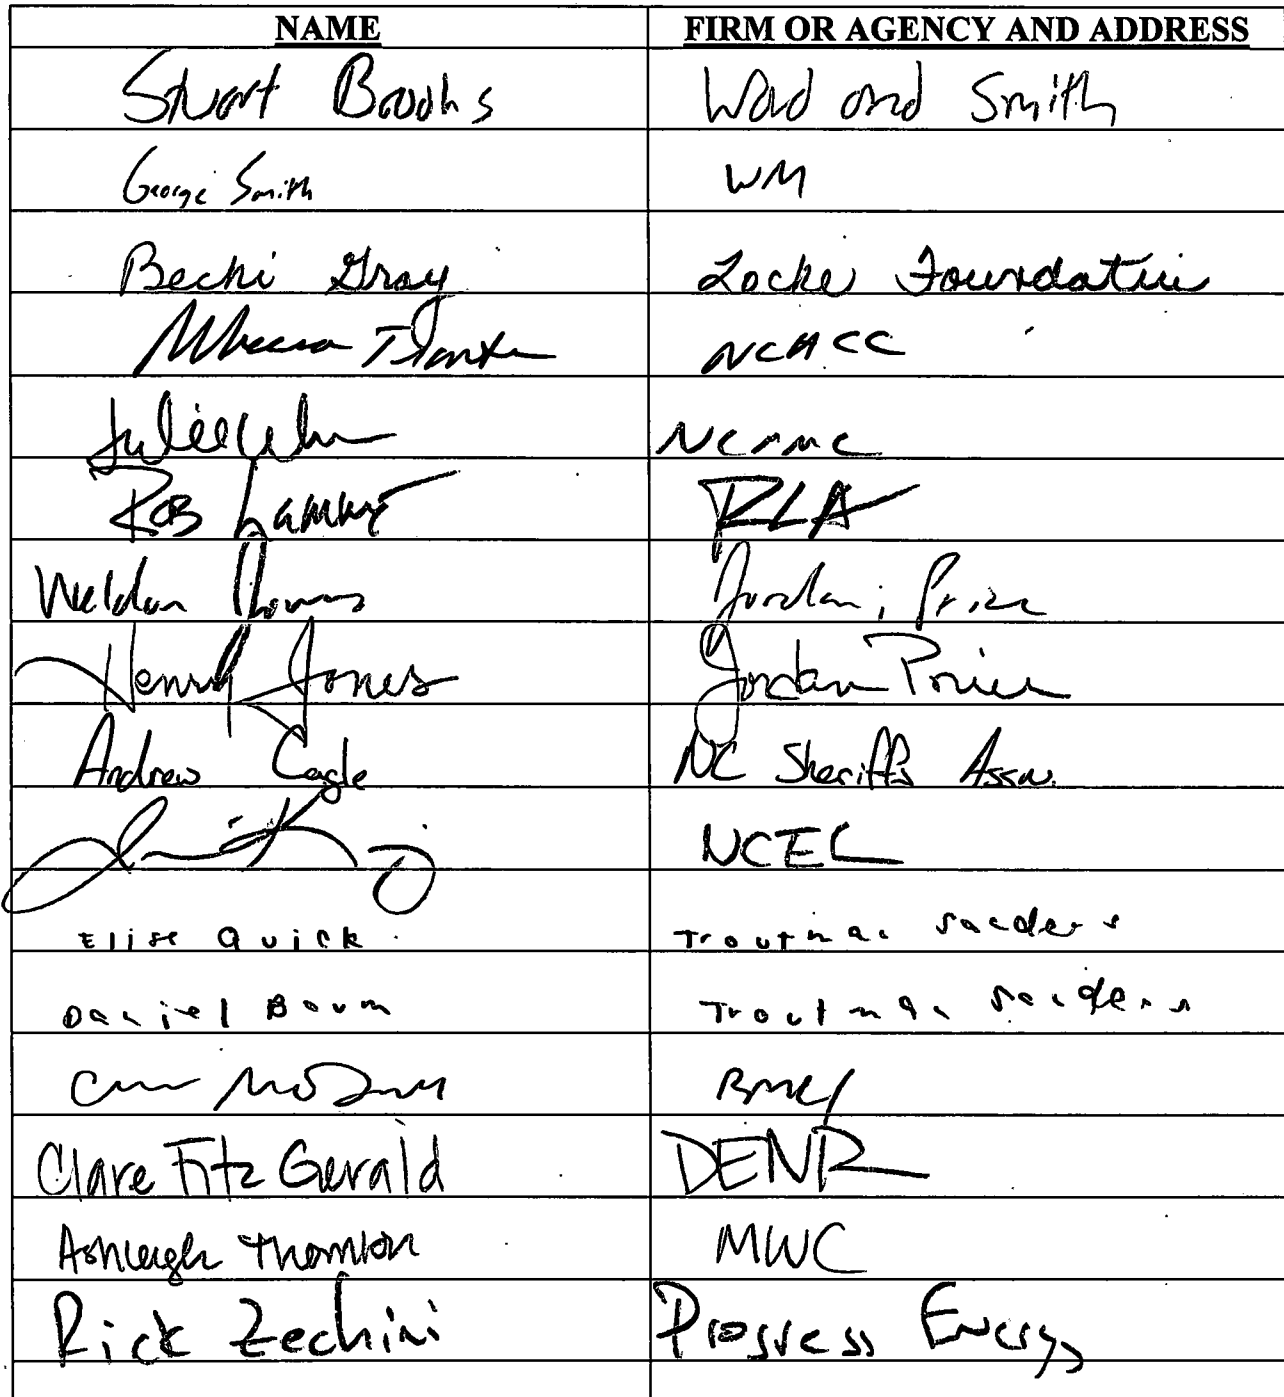 NAME FIRM OR AGENCY AND ADDRESS
Stuart Brooks Ward and Smith
George Smith WM
Becki Gray Locke Foundation
NCACC
Julie
Rob RLA
Weldon Jordan, Price
Henry Jones Jordan Price
Andrew Cagle NC Sheriffs Assn.
NCEL
Elise Quick Troutman Sanders
Daniel Baum Troutman Sanders
Clare Fitz Gerald DENR
Ashleigh Thornton MWC
Rick Zechini Progress Energy